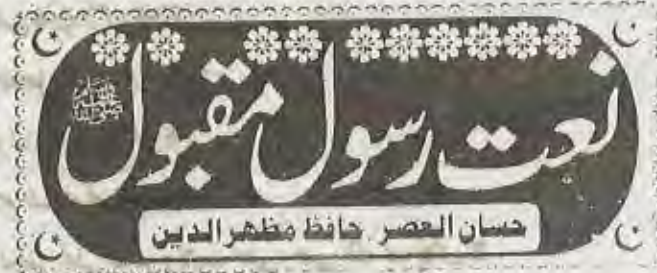 نعت رسول مقبول ﷺ
حسان العصر حافظ مظهر الدین